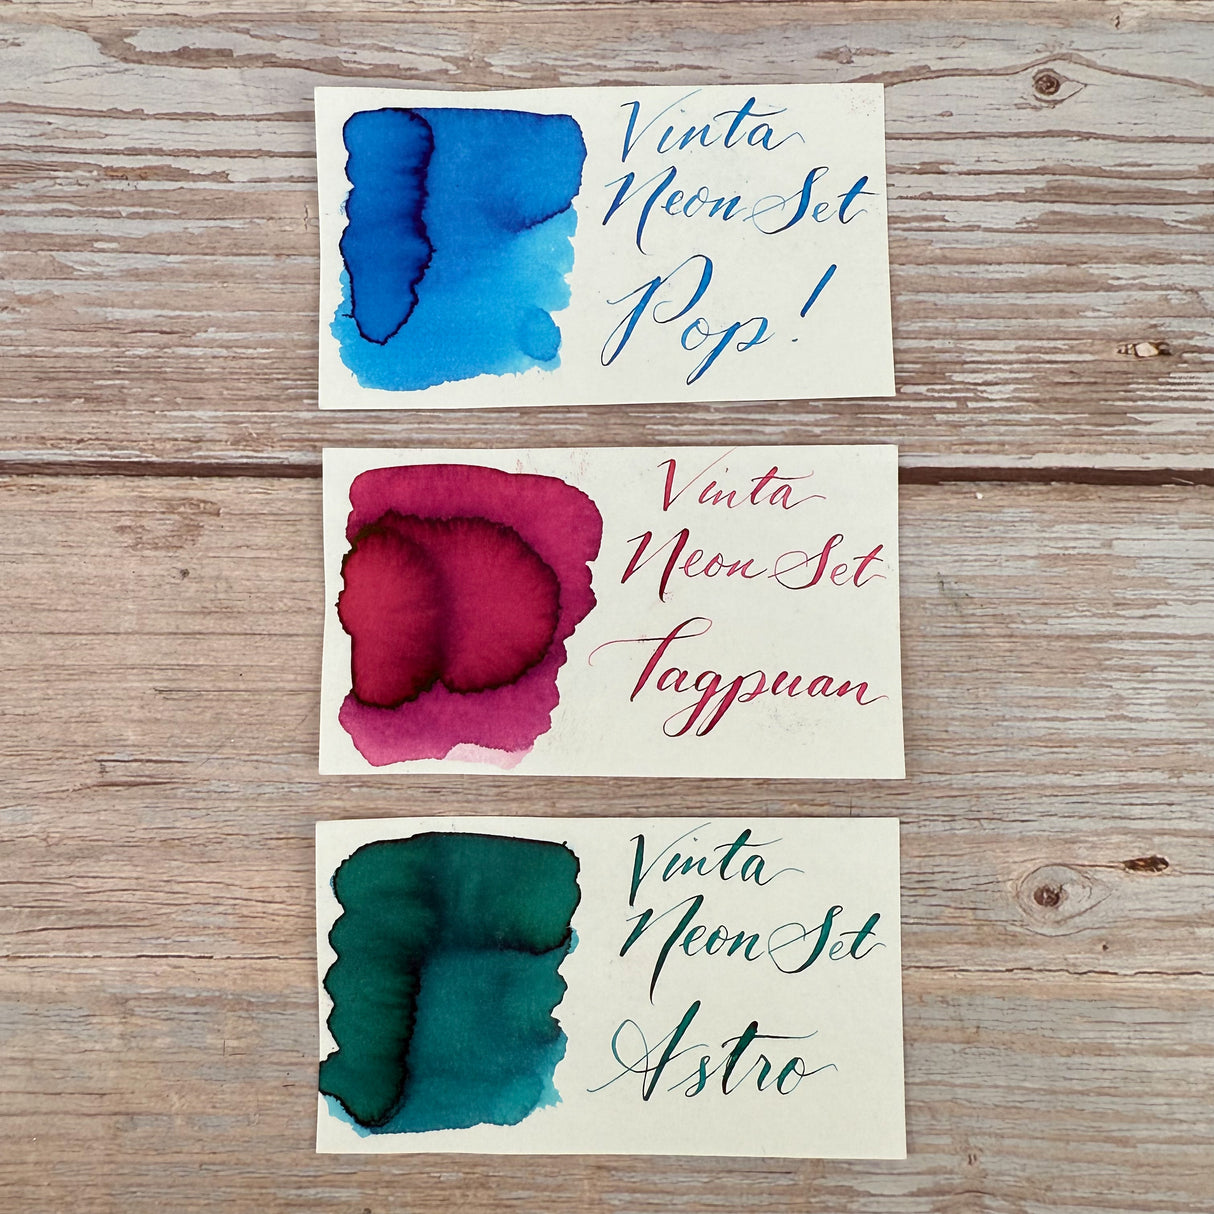 Vinta
Neon Set
Pop!
Vinta
Neon Set
Tagpuan
Vinta
Neon Set
Astro